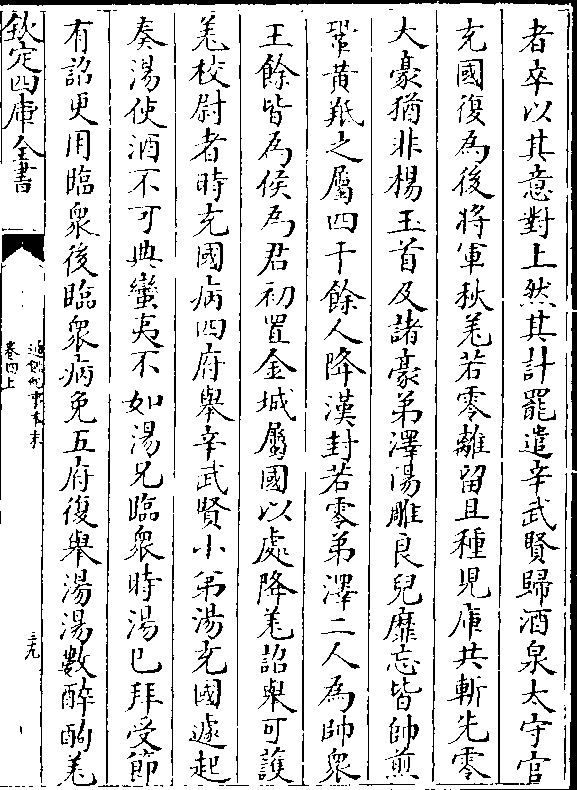 者卒以其意對上然其計罷遣辛武賢歸酒泉太守官
充國復為後將軍秋羌若零離留且種兒庫共斬先零
大豪猶非楊玉首及諸豪弟澤湯雕良兒靡忘皆帥煎
鞏黄羝之屬四千餘人降漢封若零弟澤二人為帥衆
王餘皆為侯為君初置金城屬國以處降羌詔舉可護
羌校尉者時充國病四府舉辛武賢小弟湯充國遽起
奏湯使酒不可典蠻夷不如湯兄臨衆時湯已拜受節
有詔更用臨衆後臨衆病免五府復舉湯湯數醉酗羌
欽定四庫全書
通鑑紀事本末
卷四上
三九